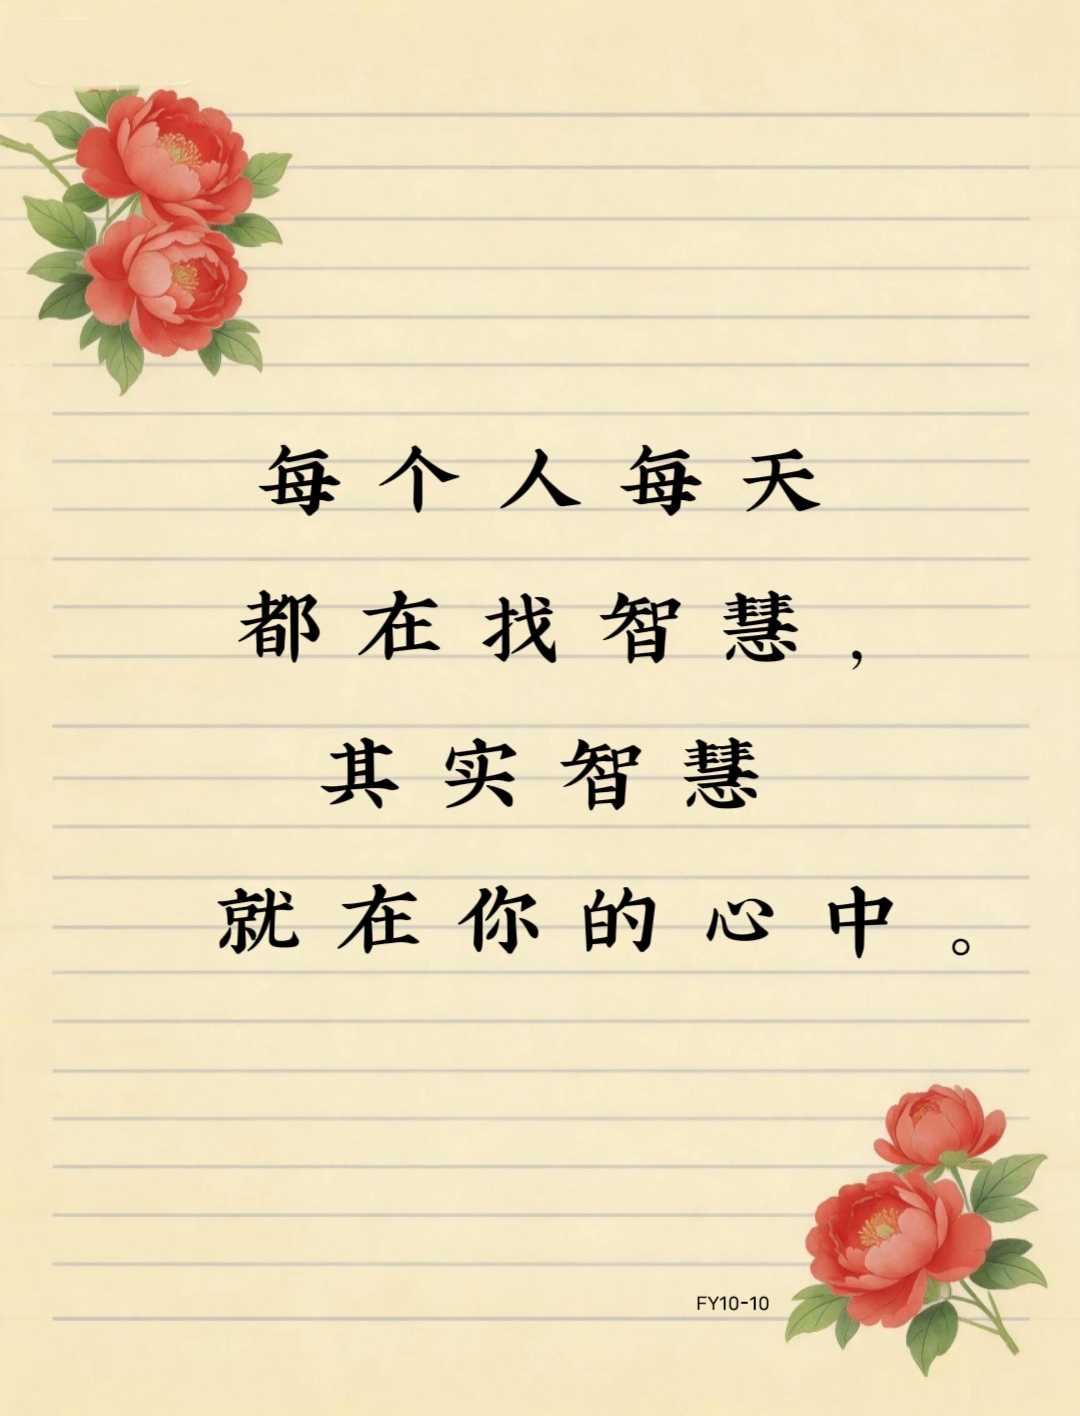 每个人每天
都在找智慧，
其实智慧
就在你的心中。
FY10-10